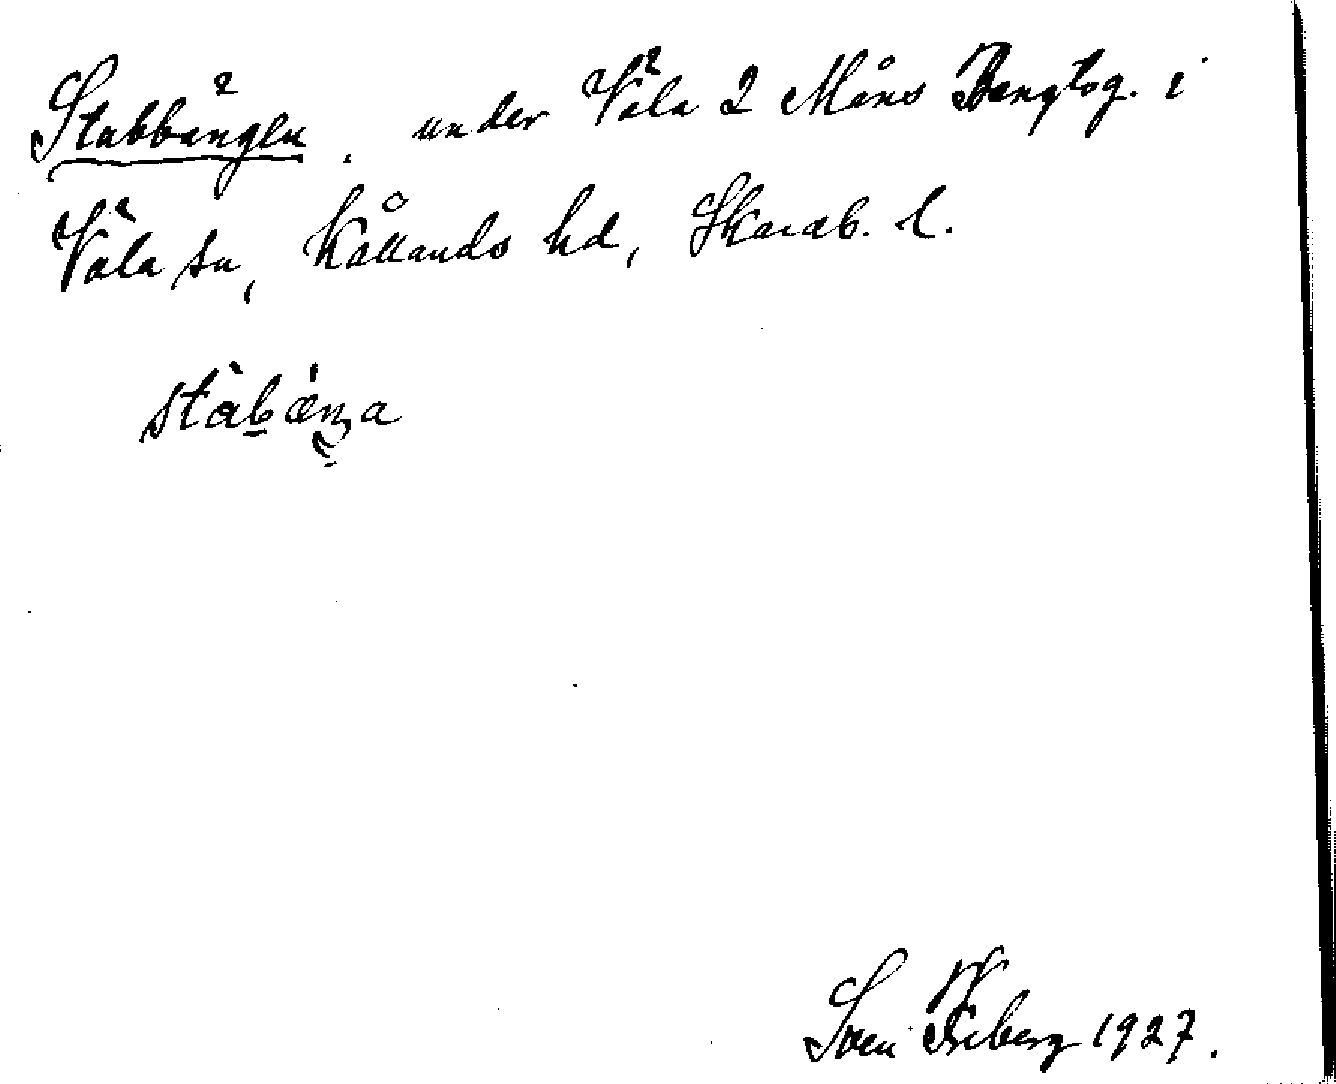 Stabbängen, under Väla 2 Måns Bengtsg. i
Väla sn, Kållands hd, Skarab. l.
stàbæ̀ŋa
Sven Friberg 1927.